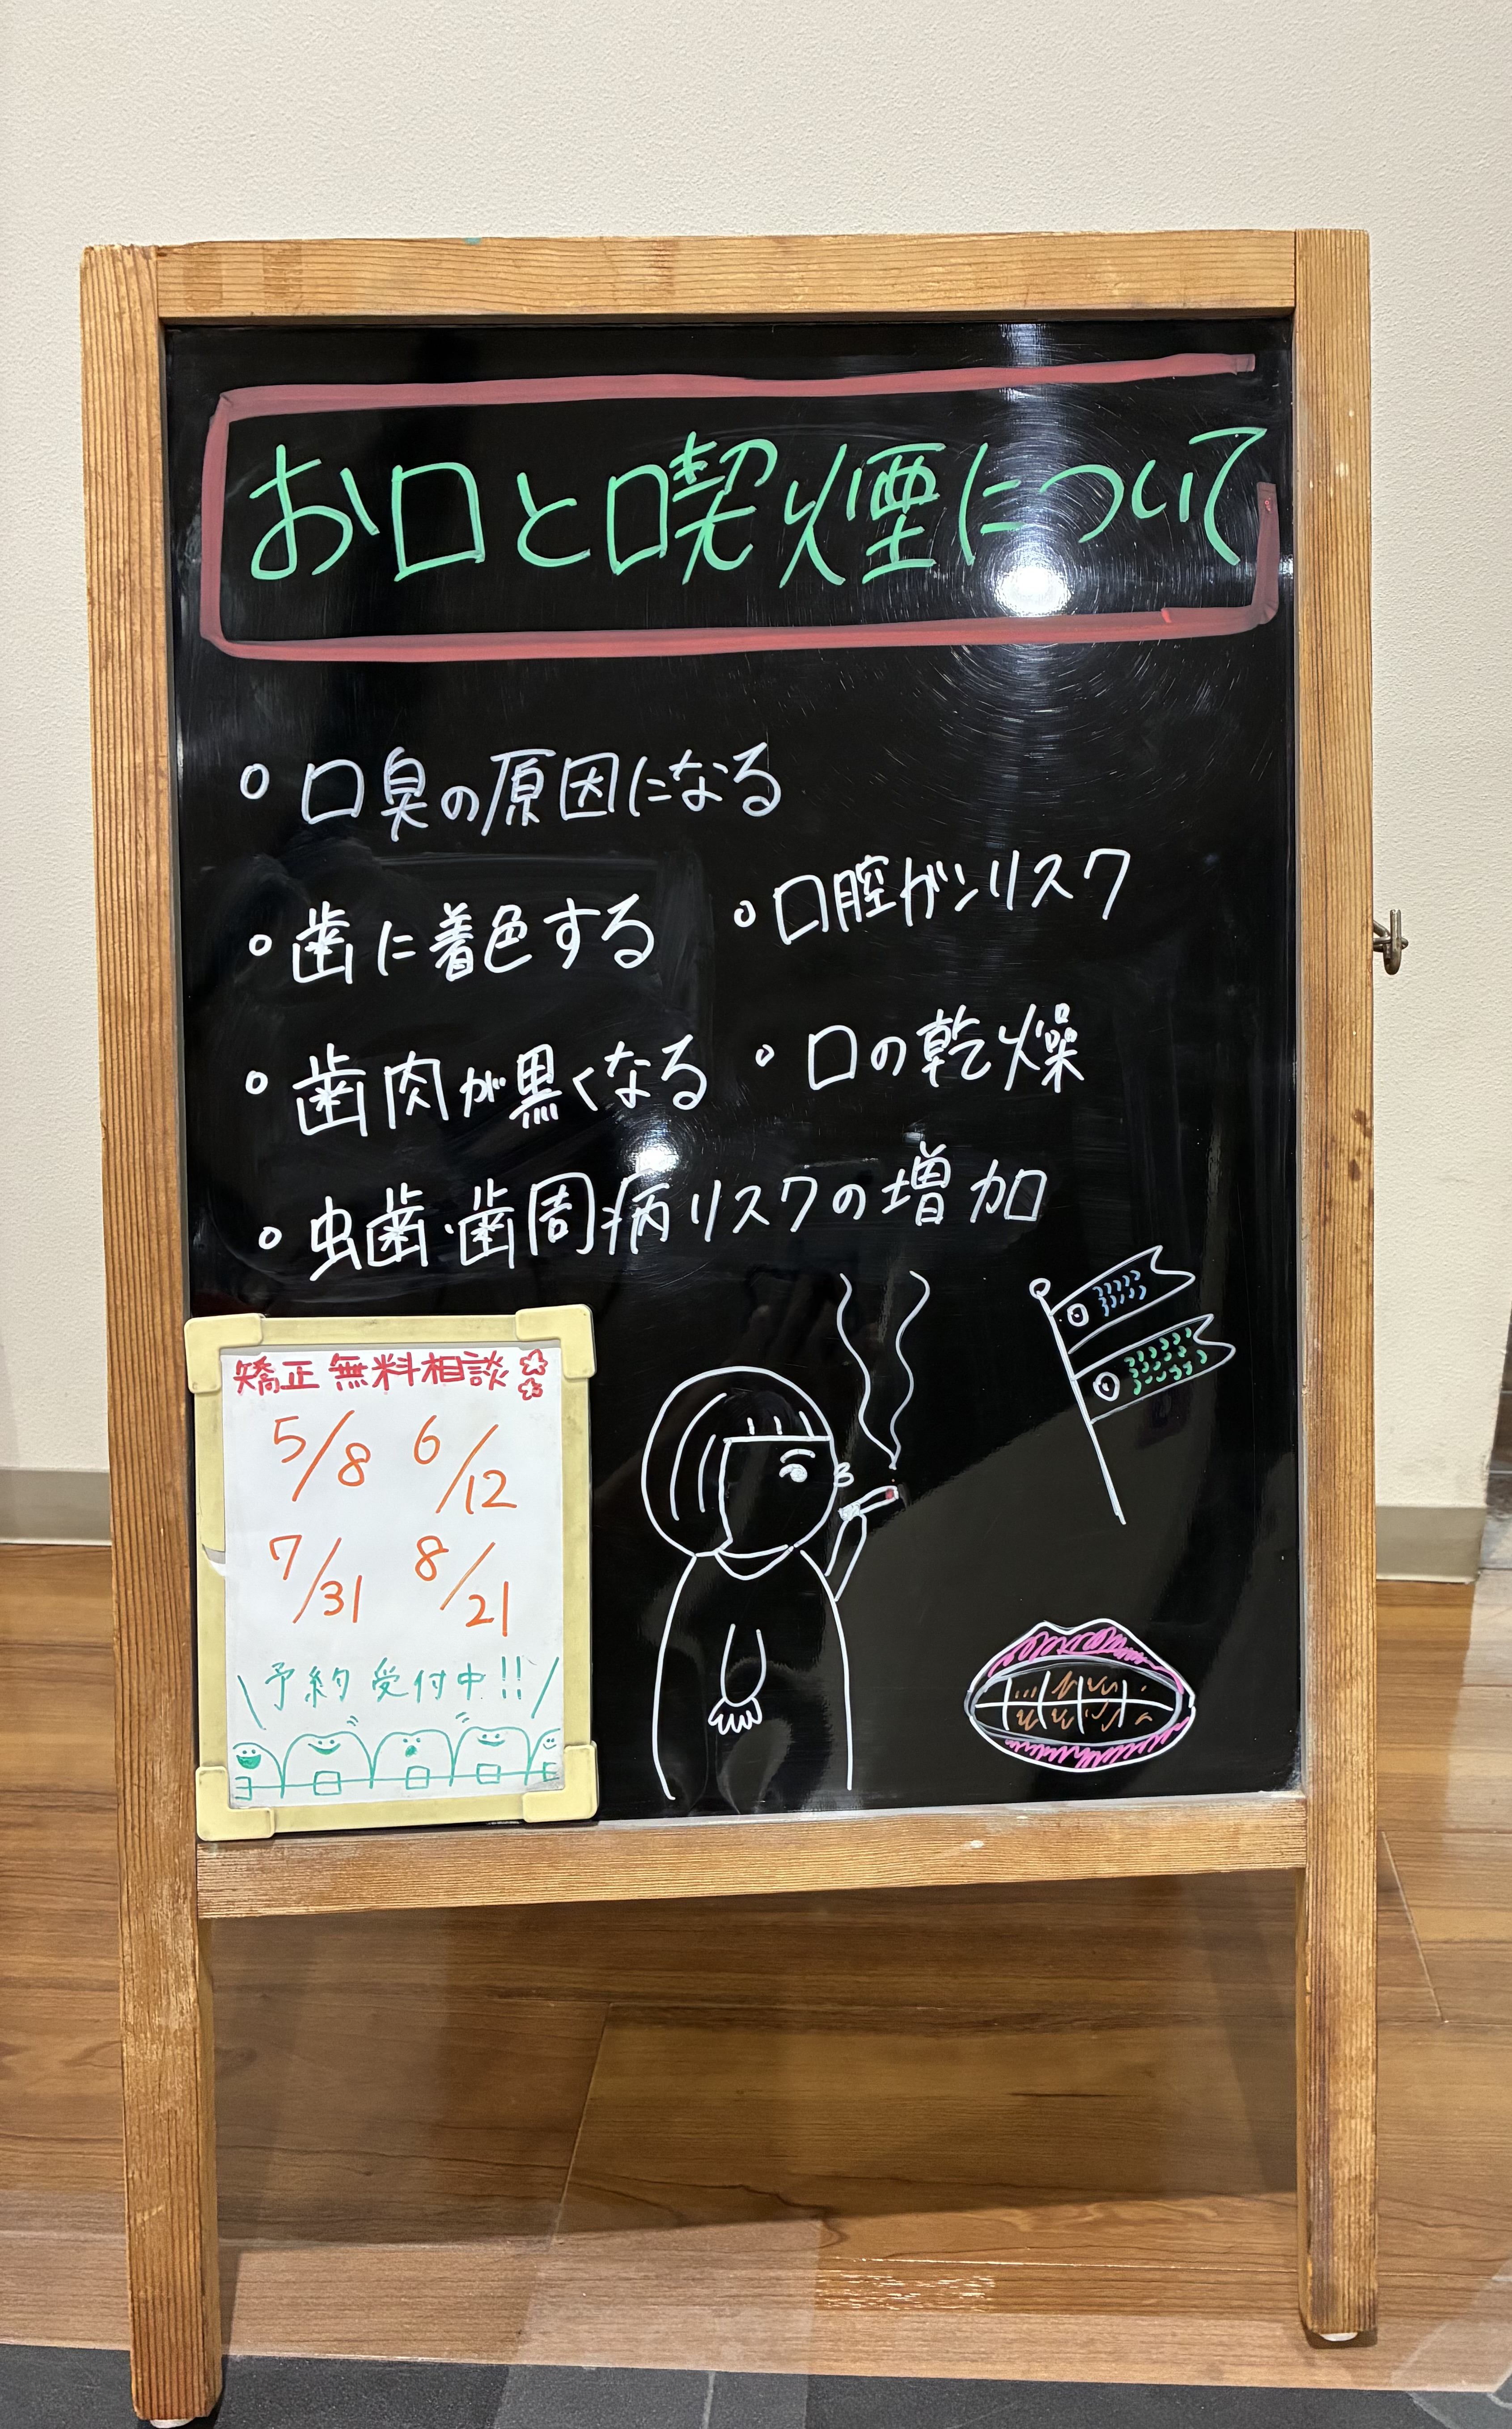 お口と喫煙について
。口臭の原因になる
。歯に着色する 。口腔がんリスク
。歯肉が黒くなる 。口の乾燥
。虫歯・歯周病リスクの増加
矯正 無料相談
5/8 6/12
7/31 8/21
\予約 受付中!!/